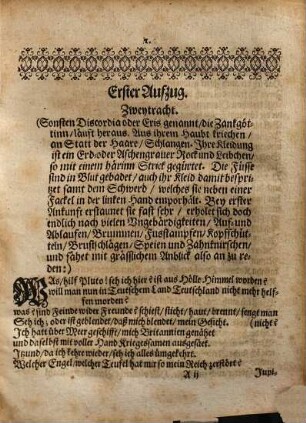 Erster Aufzug.
Zweytracht.
(Sonsten Discordia oder Eris genannt/die Zankgöt-
tinn/läuft heraus. Aus ihrem Haubt kriechen/
an Statt der Haare/Schlangen. Ihre Kleidung
ist ein Erd-oder Aschengrauer Rock und Leibchen/
so mit einem härinn Strick gegürtet. Die Füsse
sind in Blut gebadet/auch ihr Kleid damit bespri-
tzet samt dem Schwerd/welches sie neben einer
Fackel in der linken Hand emporhält. Bey erster
Ankunft erstaunet sie fast sehr/erholet sich doch
endlich nach vielen Ungebärdigkeiten/Auf-und
Ablaufen/Brummen/Fusstampfen/Kopfschüt-
teln/Brustschlägen/Speien und Zahnknirschen/
und fähet mit grässlichem Anblick also an zu re-
den:)
WAs/hilf Pluto! seh ich hier? ist aus Hölle Himmel worden?
will man nun in Teutschem Land Teutschland nicht mehr helf-
fen morden?
was? sind Feinde wider Freunde? schiest/sticht/haut/brennt/sengt man
Seh ich/oder ist geblendet/daß mich blendet/mein Gesicht. (nicht?
Ich hatt über Meer geschifft/mich Britannien genähet
und daselbst mit voller Hand Kriegessamen ausgesäet.
Itzund/da ich kehre wieder/seh ich alles umgekehrt.
Welcher Engel/welcher Teufel hat mir so mein Reich zerstört?
A ij Jupi-